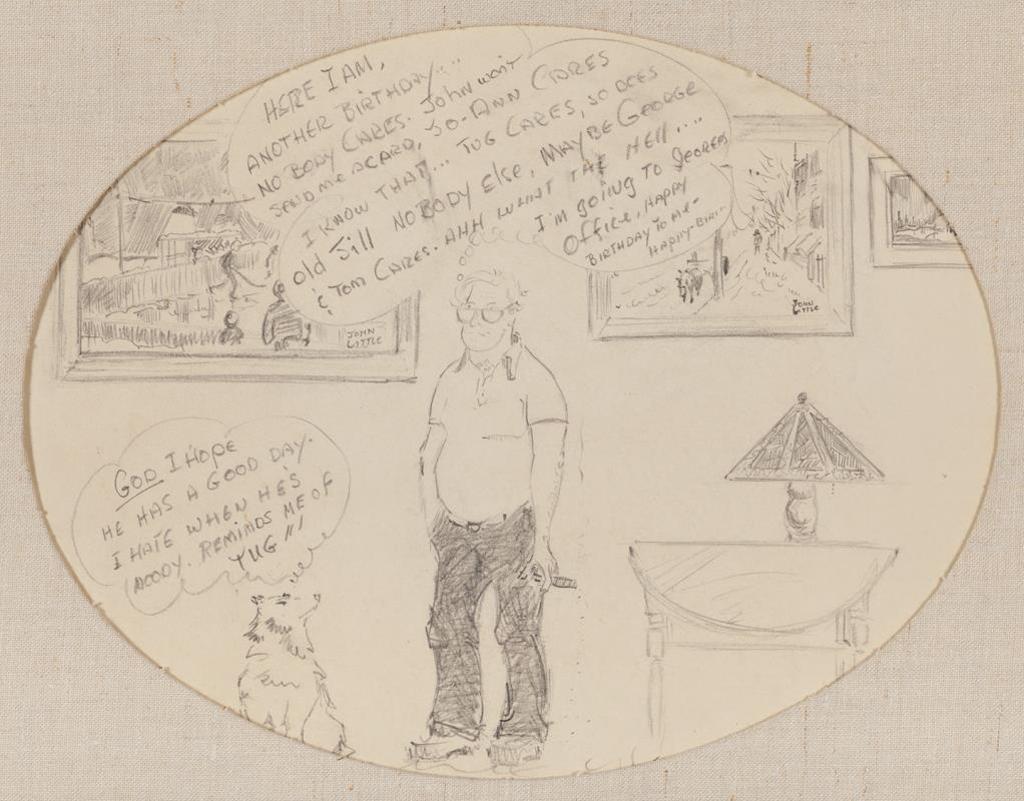 HERE I AM,
ANOTHER BIRTHDAY....
NO BODY CARES. John wont
SEND ME A CARD, JO-ANN CARES
I KNOW THAT... TUG CARES, SO DOES
old Jill NOBODY ELSE, MAYBE GEORGE
& TOM CARES. AHH WHAT THE HELL....
I'm going to Georges
OFFICE, HAPPY
BIRTHDAY TO ME-
HAPPY-BIRT-
JOHN
LITTLE
JOHN
LITTLE
GOD I HOPE
HE HAS A GOOD DAY.
I HATE WHEN HE'S
MOODY. REMINDS ME OF
TUG!!!